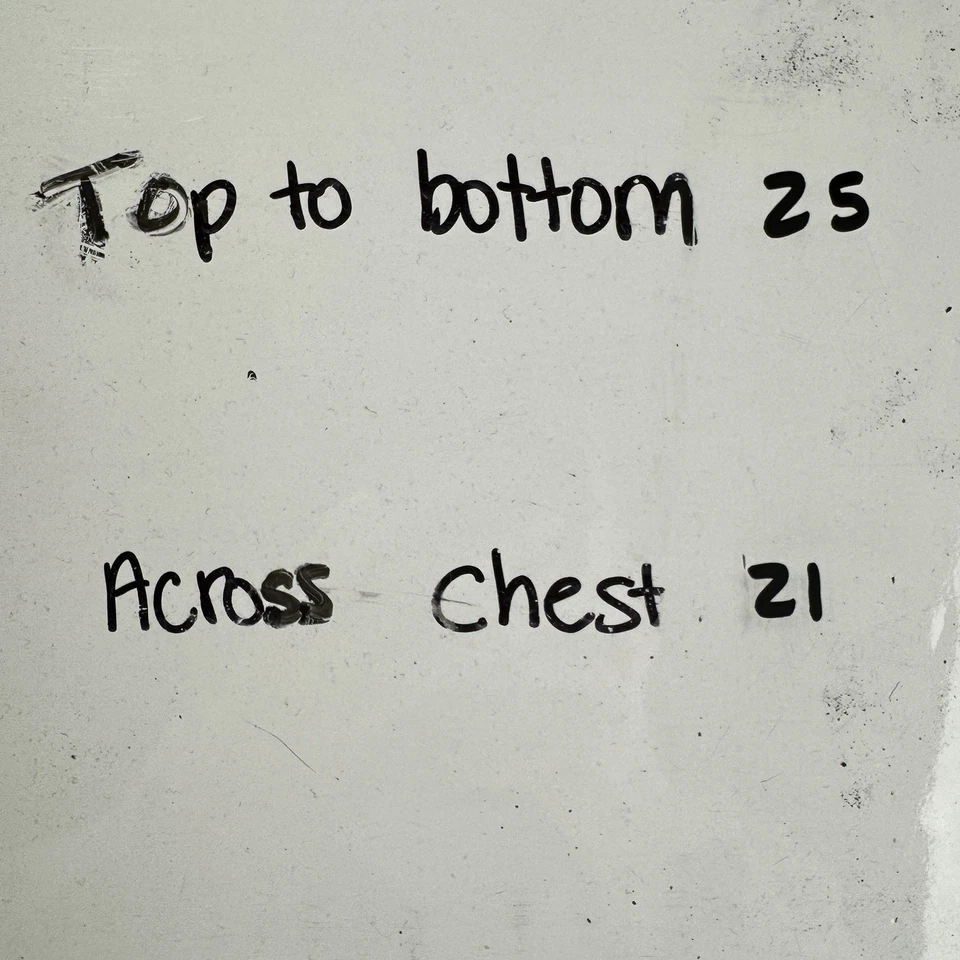 Top to bottom 25
Across Chest 21